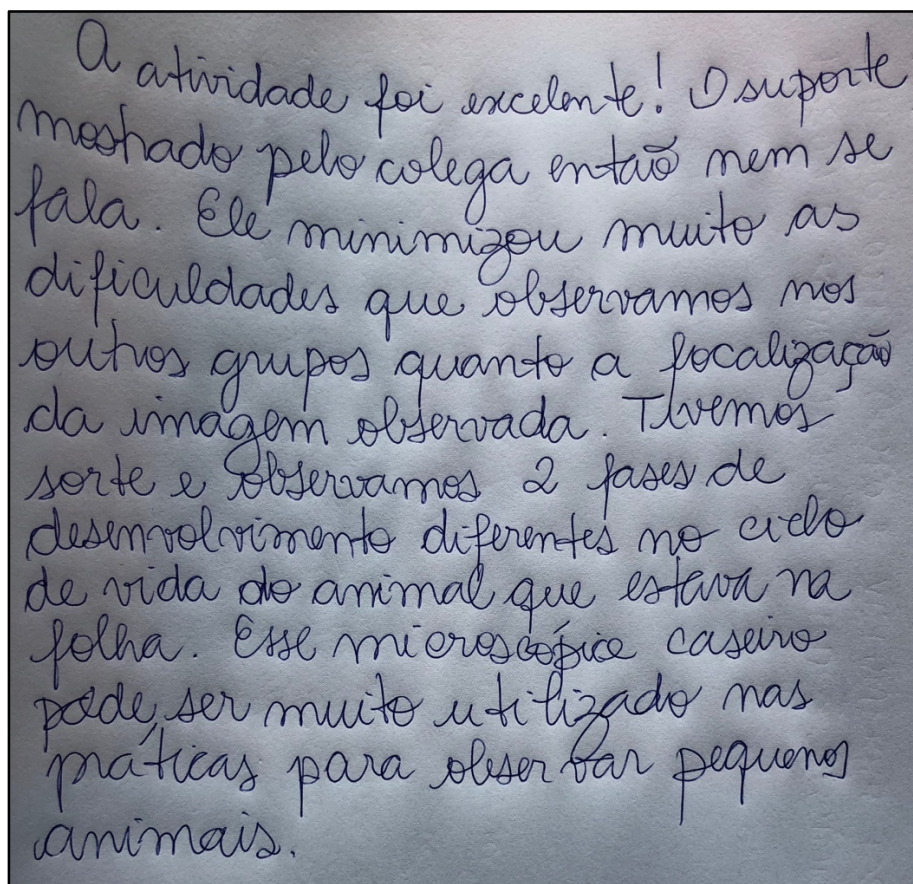 A atividade foi excelente! O suporte
mostrado pelo colega então nem se
fala. Ele minimizou muito as
dificuldades que observamos nos
outros grupos quanto a focalização
da imagem observada. Tivemos
sorte e observamos 2 fases de
desenvolvimento diferentes no ciclo
de vida do animal que estava na
folha. Esse microscópico caseiro
pode ser muito utilizado nas
práticas para observar pequenos
animais.